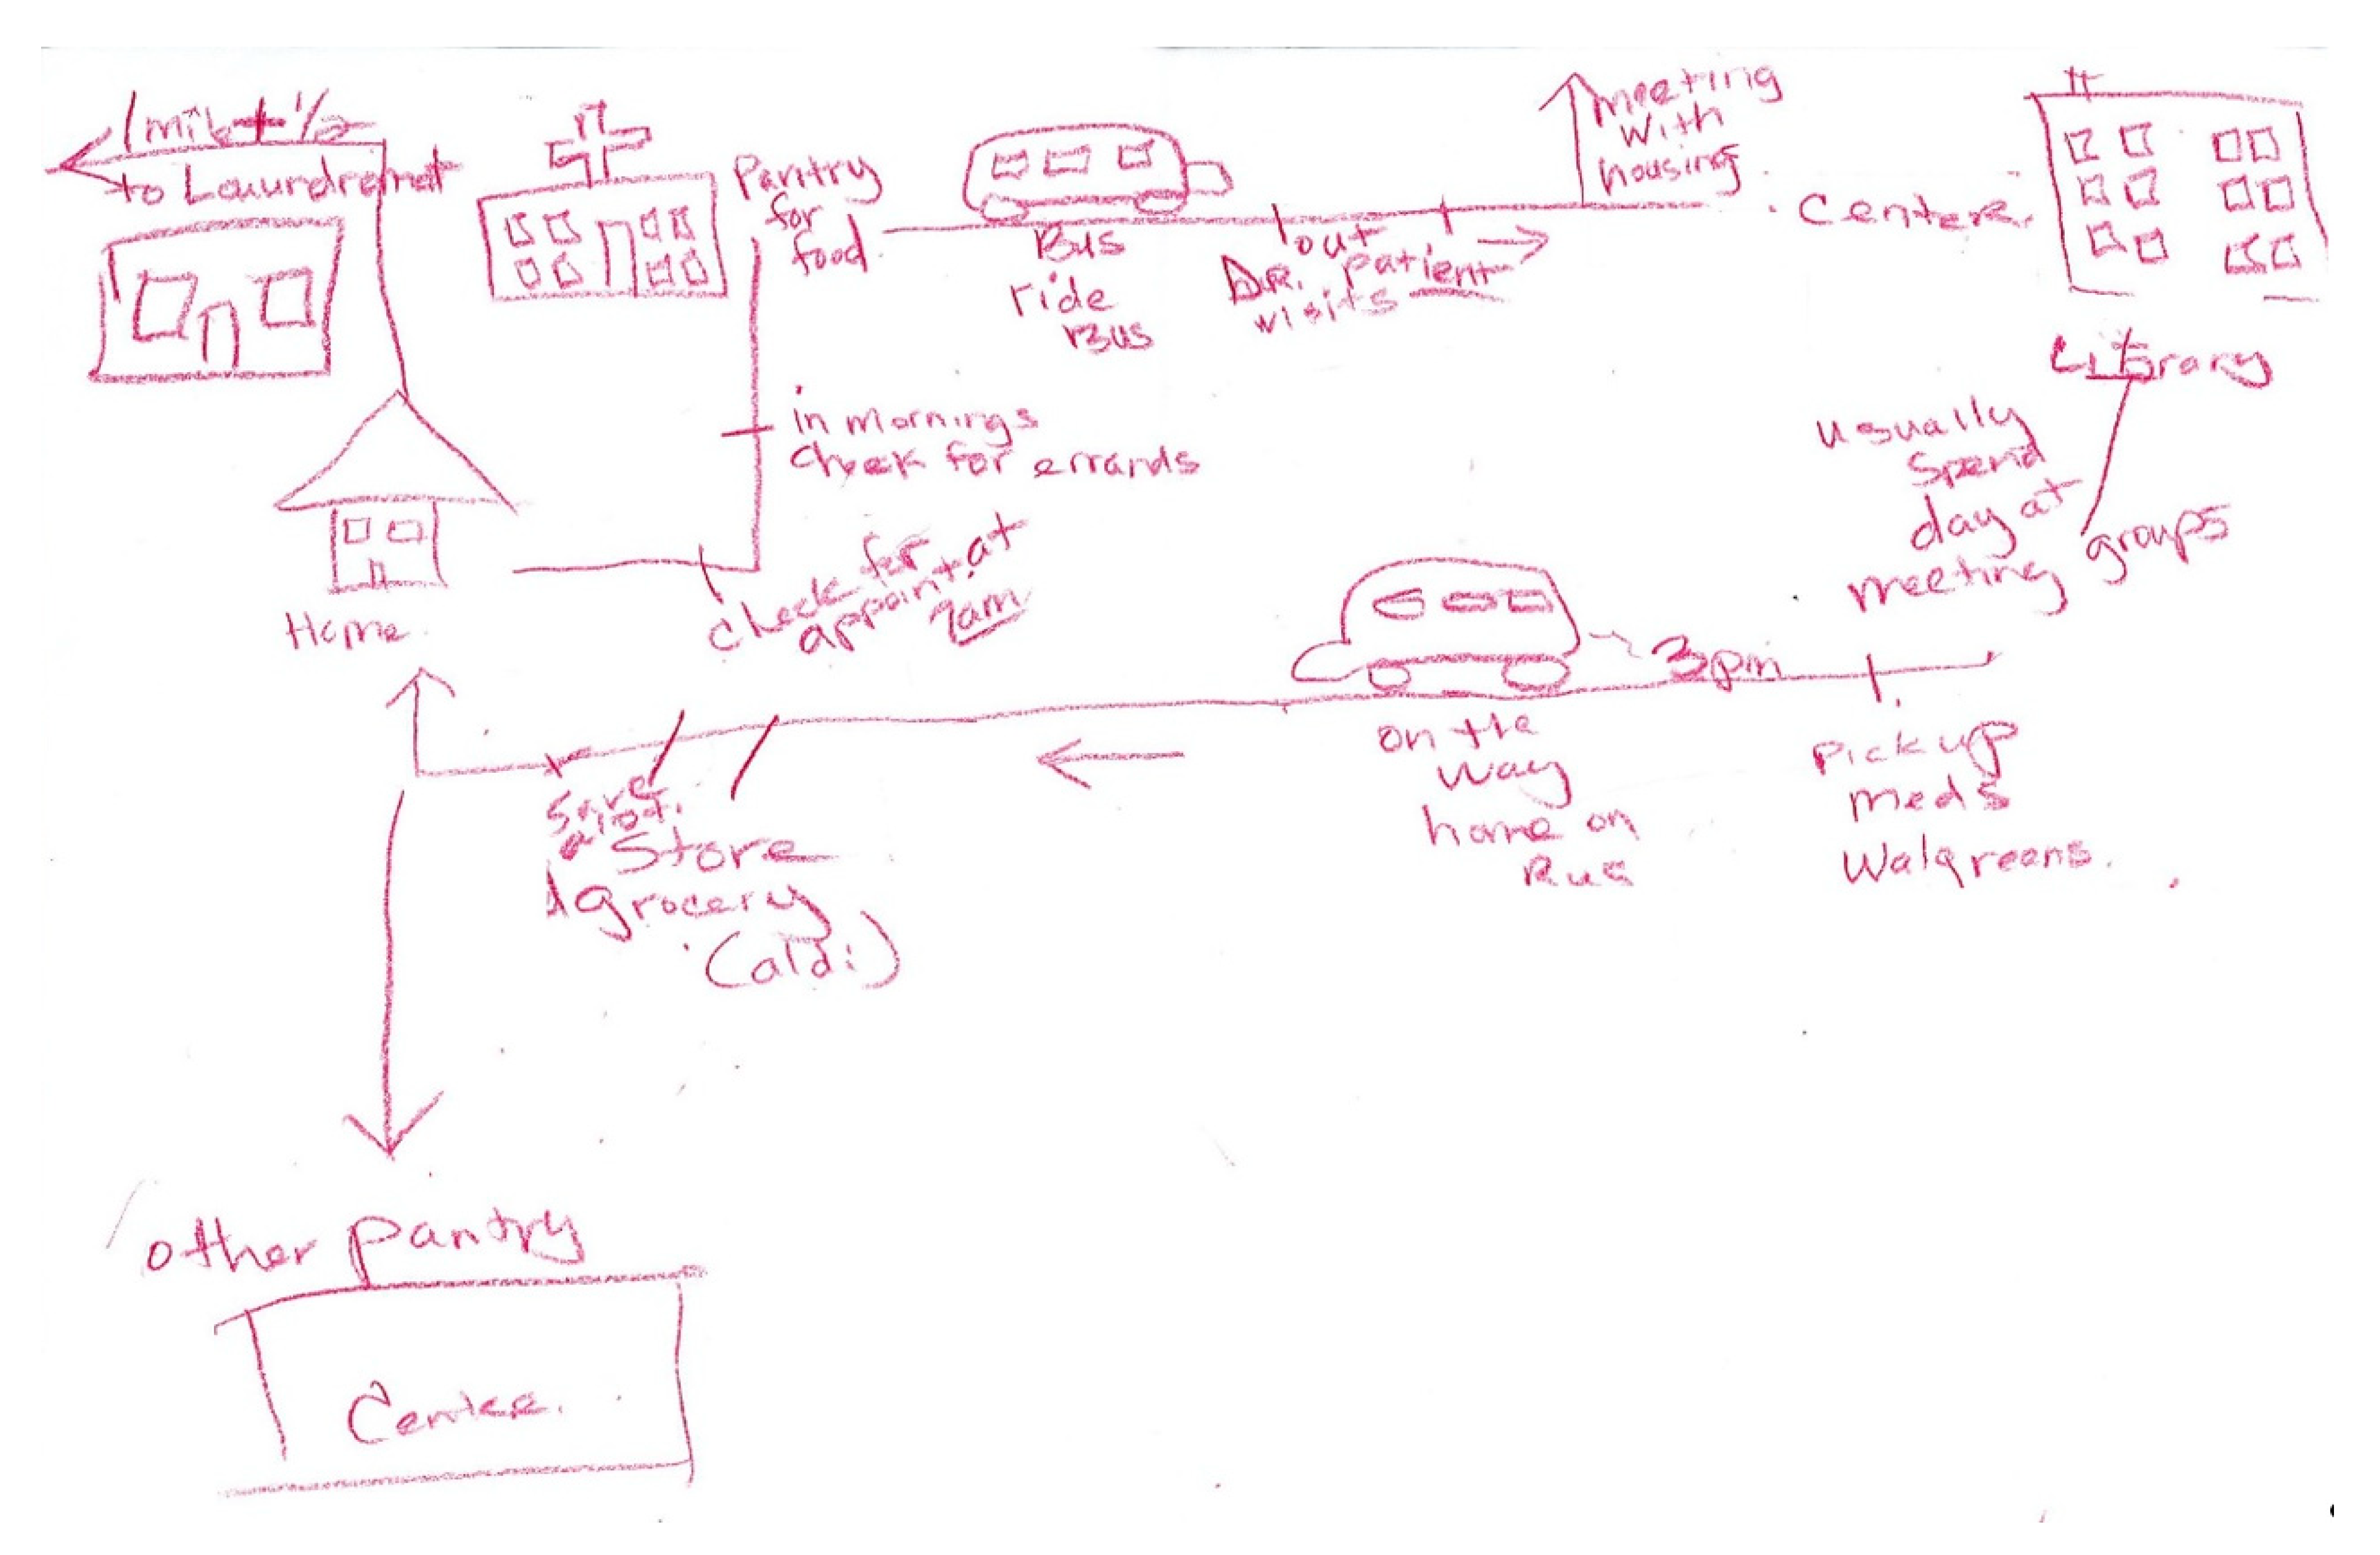 1 mile + 1/2
to Lauundromat
Pantry
for
food
Bus
ride
Bus
out
Dr. patient
visits
meeting
with
housing
Centere.
Library
in mornings
check for errands
check for
appoint. at
9am
Home
usually
spend
day at
meeting groups
3pm
on the
way
home on
Bus
Pick up
meds
Walgreens.
Save
alot.
Store
Grocery
(aldi)
other pantry